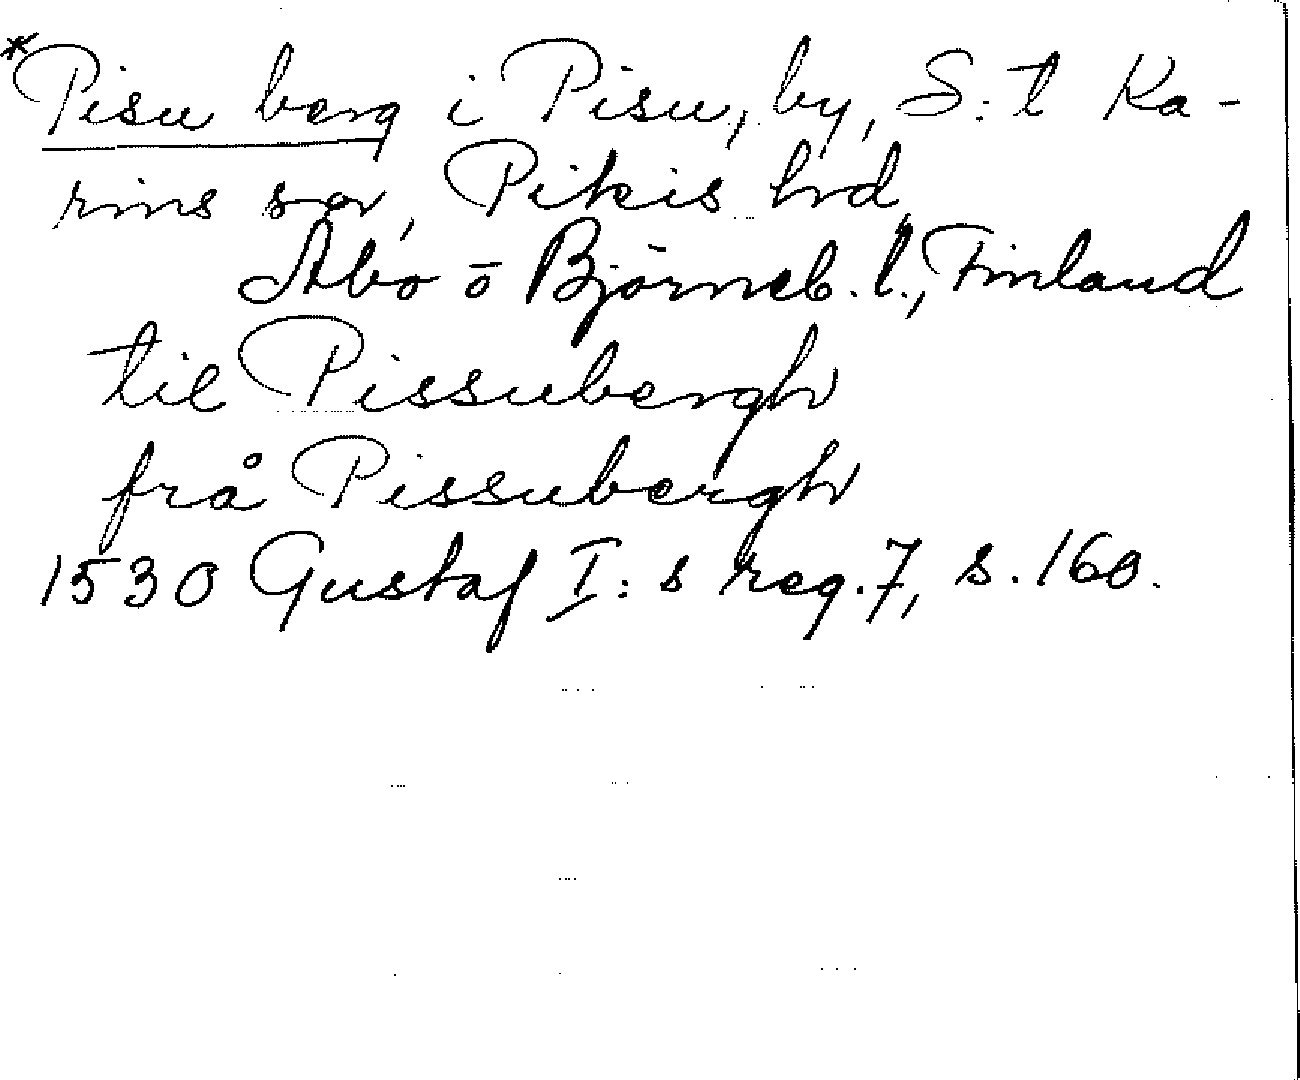 *Pisu berg i Pisu, by, S:t Ka-
rins sn, Pikis hd,
Åbo o Björneb. l., Finland
til Pissubergh
frå Pissubergh
1530 Gustaf I:s reg. 7, s. 160.